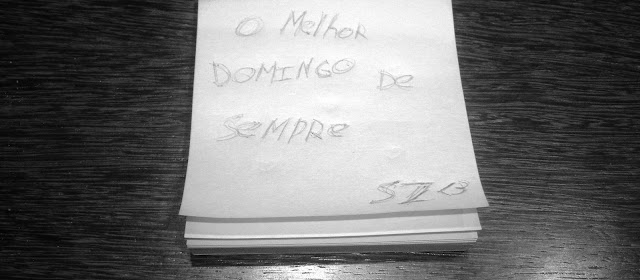 O Melhor
DOMINGO De
SeMPRe